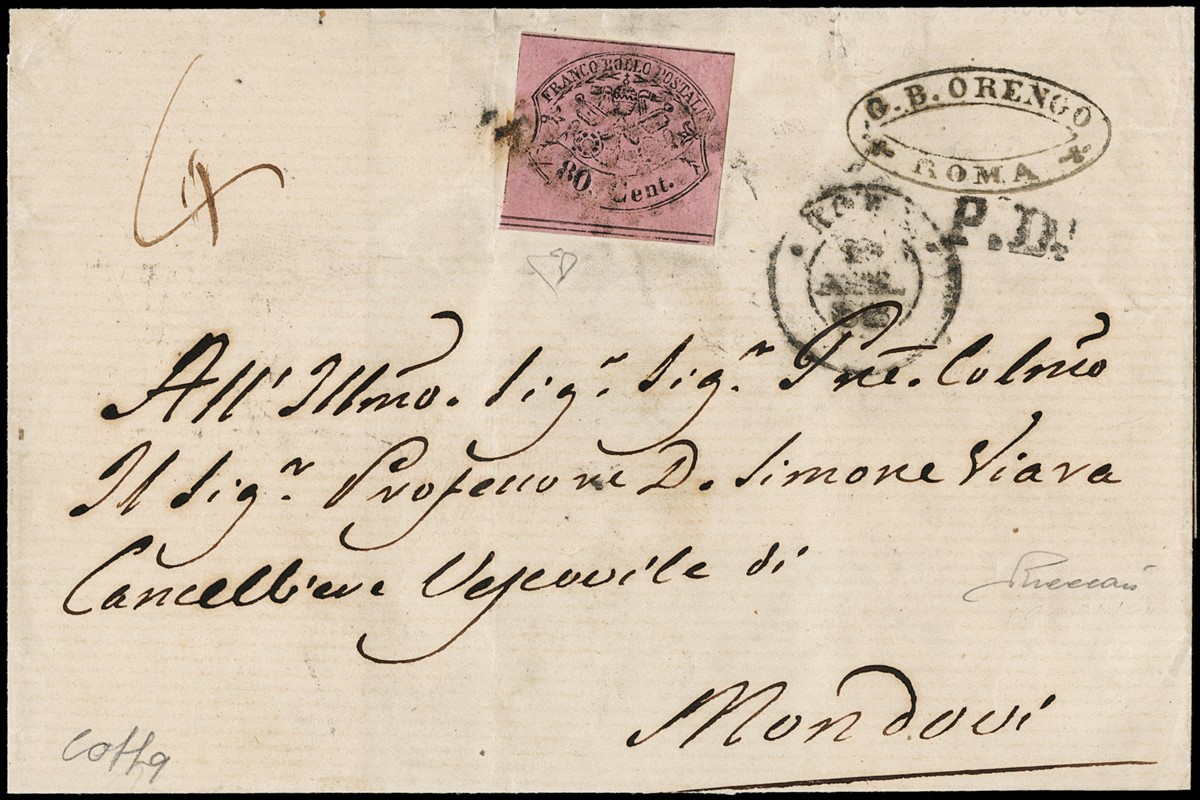 FRANCO BOLLO POSTALE
80 Cent.
G. B. ORENGO
ROMA
P.D.
All' Illm̃o. Sig.ʳ Sig.ʳ Pñe. Colmõ
Il Sig.ʳ Professore D. Simone Viara
Cancelliere Vescovile di
Mondovi